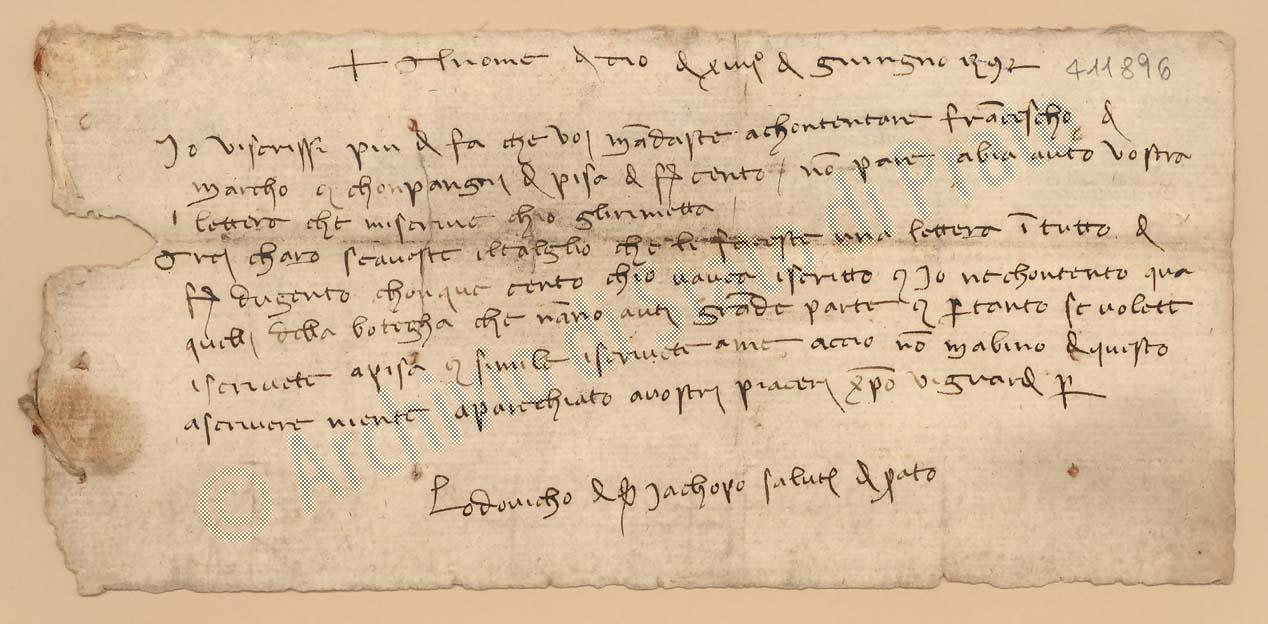 + Al nome di dio dì xiiii° di giungno 1392
411896
Io vi scrissi più dì fa che voi mãdaste a chontentare frãcescho di
marcho e chonpangni di pisa di f. cento, nõ pare abia auto vostra
lettera che mi scrive ch'io gli rimetta
Arei charo se aveste il talglio che le faceste una lettera ĩ tutto di
f. dugento chon que cento ch'io v'avea iscritto e io ne chontento qua
quelli della botegha che n'ãno auti grãde parte e per tanto se volete
iscrivete a pisa e simile iscrivete a me acciò nõ m'abino di questo
a scrivere niente aparechiato a vostri piaceri xpõ vi guardi per
Lodovicho di ser Jachopo saluti di prato
© Archivio di Stato di Prato